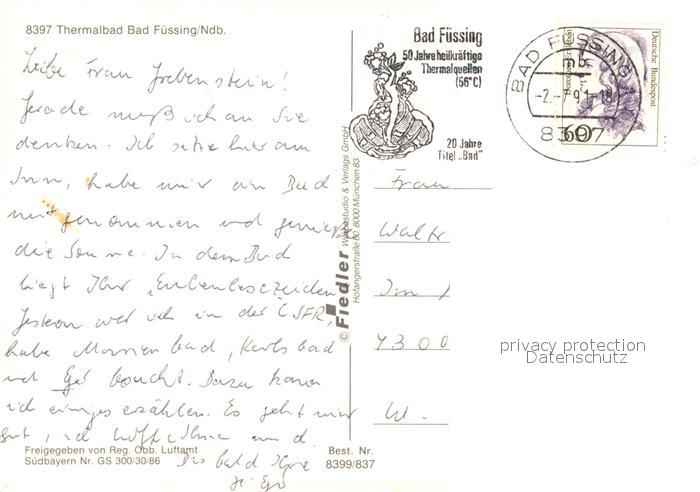 8397 Thermalbad Bad Füssing/Ndb.
Liebe Frau Grebenstein!
Gerade muß ich an Sie
denken. Ich sitze hier am
Inn, habe mir ein Bad
mitgenommen und genieße
die Sonne. In dem Bad
liegt Ihr
Gestern war ich in der ČSFR,
habe Marienbad, Karlsbad
und Eger besucht. Dazu kann
ich einiges erzählen. Es geht mir
gut, und hoffe Ihnen auch
Bis bald Ihre
Freigegeben von Reg. Obb. Luftamt
Südbayern Nr. GS 300/30/86
Best. Nr.
8399/837
© Fiedler Werbestudio & Verlags GmbH
Hofangerstraße 60, 8000 München 83
Bad Füssing
50 Jahre heilkräftige
Thermalquellen
(56°C)
20 Jahre
Titel „Bad"
BAD FÜSSING 1
mb
-2.-7.91-18
8397
60
Deutsche Bundespost
Frau
Walt
Im
4300
W.
privacy protection
Datenschutz